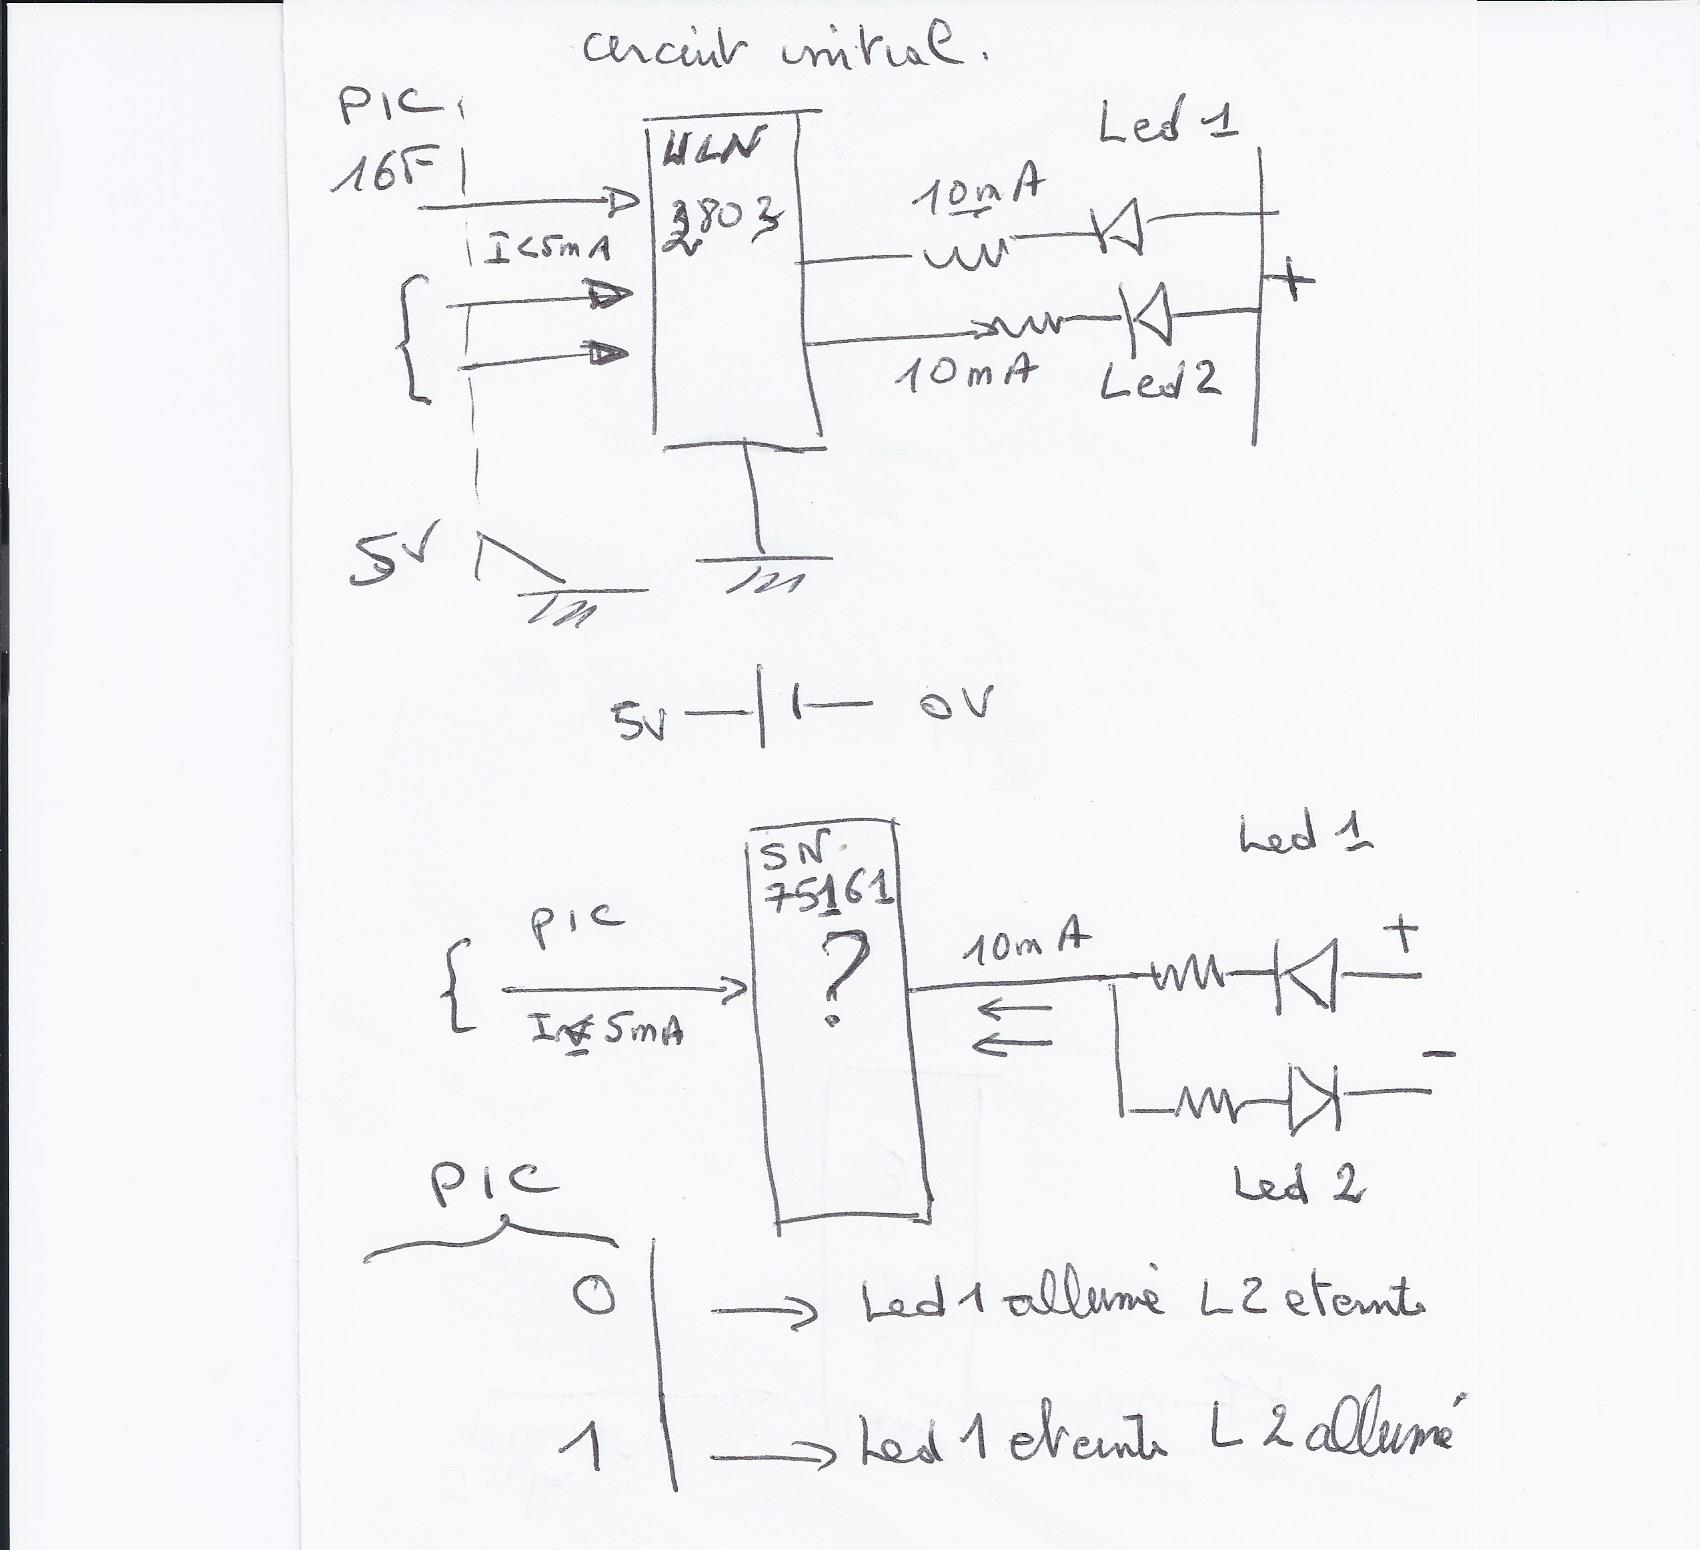 circuit initial.
PIC
16F
ULN
2803
I<5mA
10mA
Led 1
+
10mA
Led 2
5V
5V
0V
SN
75161
?
PIC
I<5mA
10mA
Led 1
+
-
Led 2
PIC
0 Led 1 allumé L2 eteinte
1 Led 1 eteinte L2 allumé